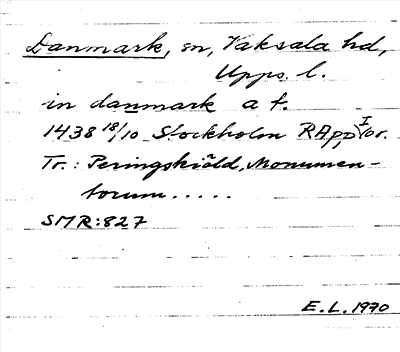 Danmark, sn, Vaksala hd,
Upps. l.
in danmark a f.
1438 18/10 Stockholm RApp I or.
Tr.: Peringskiöld, Monumen-
torum.....
SMR:827
E.L.1970